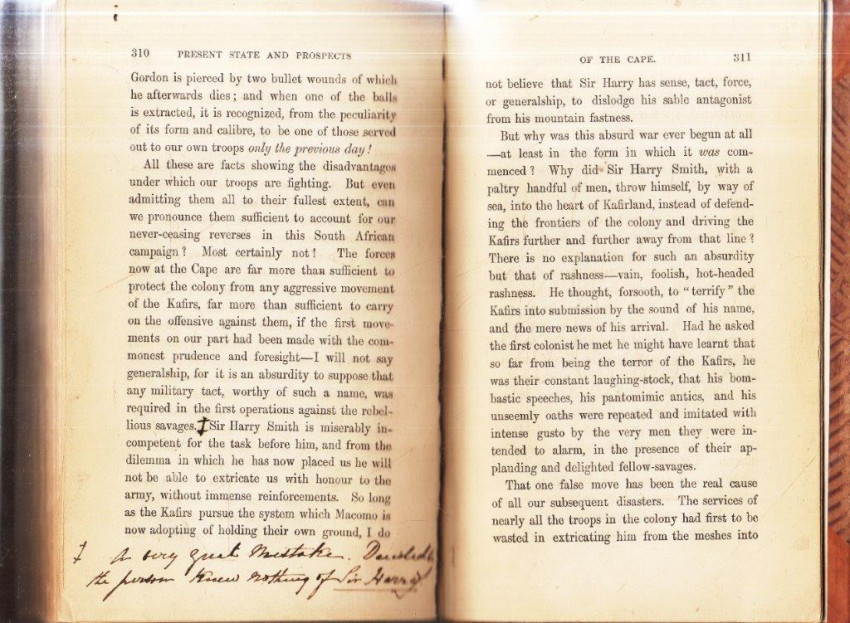 310 PRESENT STATE AND PROSPECTS
Gordon is pierced by two bullet wounds of which
he afterwards dies; and when one of the balls
is extracted, it is recognized, from the peculiarity
of its form and calibre, to be one of those served
out to our own troops only the previous day!
All these are facts showing the disadvantages
under which our troops are fighting. But even
admitting them all to their fullest extent, can
we pronounce them sufficient to account for our
never-ceasing reverses in this South African
campaign? Most certainly not! The forces
now at the Cape are far more than sufficient to
protect the colony from any aggressive movement
of the Kafirs, far more than sufficient to carry
on the offensive against them, if the first move-
ments on our part had been made with the com-
monest prudence and foresight—I will not say
generalship, for it is an absurdity to suppose that
any military tact, worthy of such a name, was
required in the first operations against the rebel-
lious savages.‡ Sir Harry Smith is miserably in-
competent for the task before him, and from the
dilemma in which he has now placed us he will
not be able to extricate us with honour to the
army, without immense reinforcements. So long
as the Kafirs pursue the system which Macomo is
now adopting of holding their own ground, I do
‡ A very great Mistake.
the person Knew nothing of Sir Harry
OF THE CAPE. 311
not believe that Sir Harry has sense, tact, force,
or generalship, to dislodge his sable antagonist
from his mountain fastness.
But why was this absurd war ever begun at all
—at least in the form in which it was com-
menced? Why did Sir Harry Smith, with a
paltry handful of men, throw himself, by way of
sea, into the heart of Kafirland, instead of defend-
ing the frontiers of the colony and driving the
Kafirs further and further away from that line?
There is no explanation for such an absurdity
but that of rashness—vain, foolish, hot-headed
rashness. He thought, forsooth, to "terrify" the
Kafirs into submission by the sound of his name,
and the mere news of his arrival. Had he asked
the first colonist he met he might have learnt that
so far from being the terror of the Kafirs, he
was their constant laughing-stock, that his bom-
bastic speeches, his pantomimic antics, and his
unseemly oaths were repeated and imitated with
intense gusto by the very men they were in-
tended to alarm, in the presence of their ap-
plauding and delighted fellow-savages.
That one false move has been the real cause
of all our subsequent disasters. The services of
nearly all the troops in the colony had first to be
wasted in extricating him from the meshes into